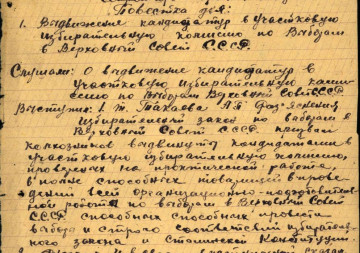 Повестка дня:
1. Выдвижение кандидатур в участковую
избирательную комиссию по выборам
в Верховный Совет СССР.
Слушали: О выдвижение кандидатур в
участковую избирательную комис
сию по выборам Верховный Совет СССР.
Выступил: 1. т. разъяснения
избирательный закон по выборам в
Верховный Совет СССР призвал
колхозников выдвинуть кандидатами в
участковую избирательную комиссию,
проверенных на практической работе,
вполне способных товарищей в прове
дении всей организационно-подготовитель
ной работы по выборам в Верховный Совет
СССР способных способных провести
выборы и строго соответствии избиратель
ного закона и Сталинской Конституции.